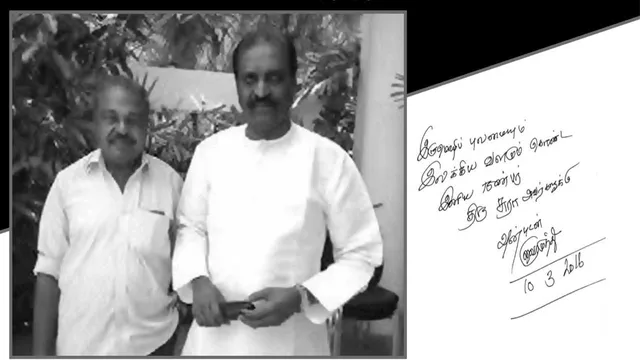 இருமொழிப் புலமையும்
இலக்கிய வளமும் கொண்ட
இனிய நண்பர்
திரு
அன்புடன்
வைரமுத்து
10 3 2016